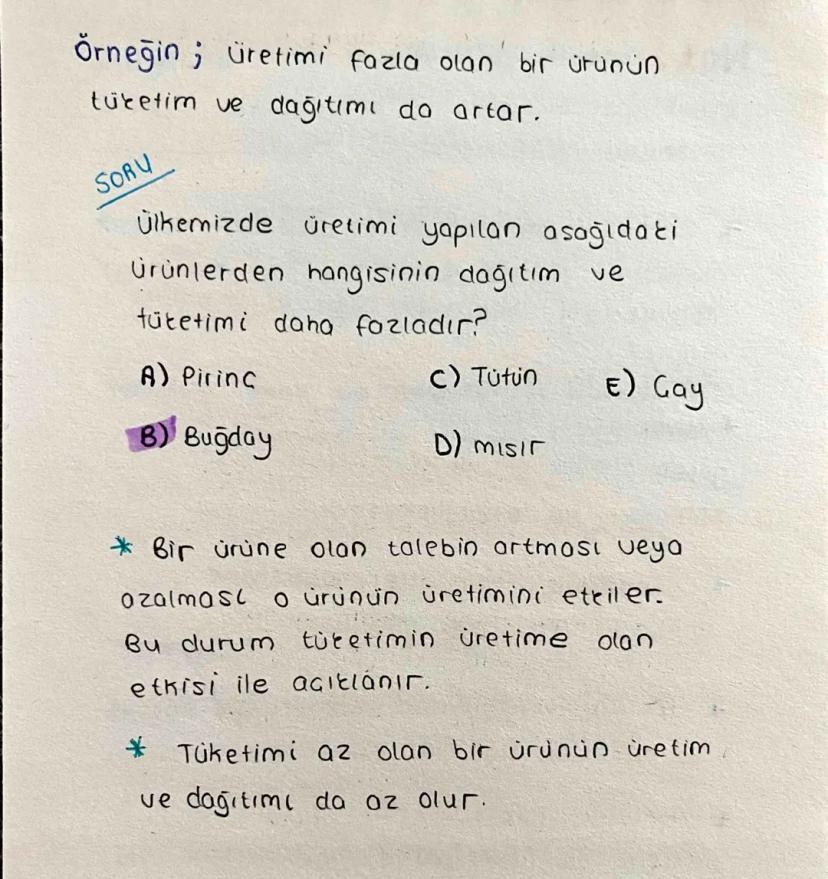 Örneğin ; üretimi fazla olan bir ürünün
tüketim ve dağıtımı da artar.
SORU
Ülkemizde üretimi yapılan asağıdaki
ürünlerden hangisinin dağıtım ve
tüketimi daha fazladır?
A) Pirinc C) Tütün E) Cay
B) Buğday D) mısır
* Bir ürüne olan talebin artması veya
azalması o ürünün üretimini etkiler.
Bu durum tüketimin üretime olan
etkisi ile acıklanır.
* Tüketimi az olan bir ürünün üretim
ve dağıtımı da az olur.